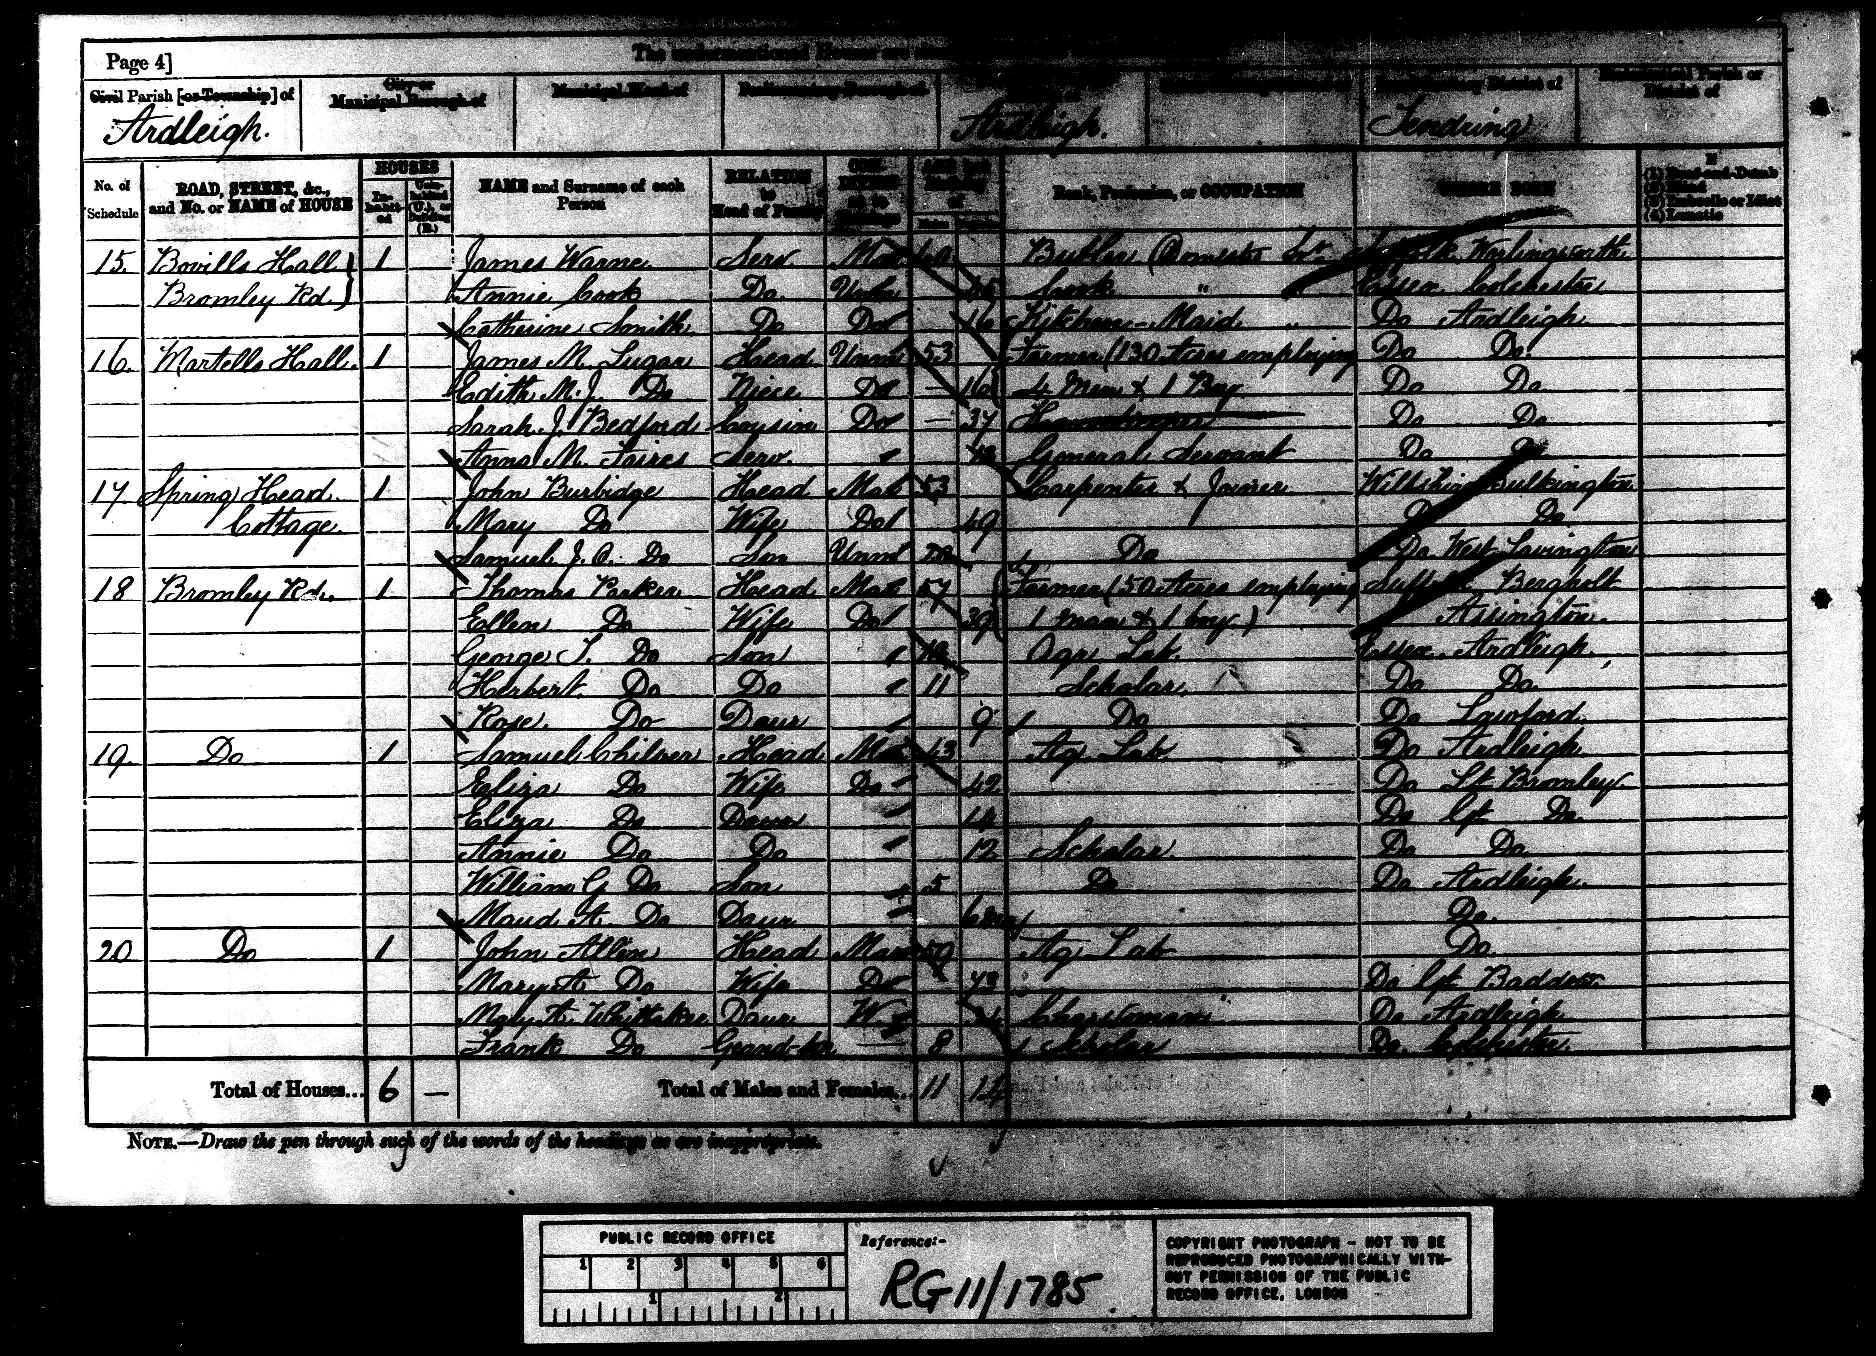 Page 4]
The undermentioned Houses are
Civil Parish [or Township] of
City or Municipal Borough of
Municipal Ward of
Parliamentary Borough of
Ecclesiastical Parish or District of
Ardleigh.
Ardleigh.
Tendring
No. of Schedule
ROAD, STREET, &c., and No. or NAME of HOUSE
HOUSES
Inhabited
Uninhabited (U.), or Building (B.)
NAME and Surname of each Person
RELATION to Head of Family
CONDITION as to Marriage
AGE last Birthday of
Males
Rank, Profession, or OCCUPATION
WHERE BORN
If
(1) Deaf-and-Dumb
(2) Blind
(3) Imbecile or Idiot
(4) Lunatic
15. Bovills Hall 1 James Warne Serv Mar 40 Butler (Domestic Sert. Suffolk Worlingworth
Bromley Rd. Annie Cook Do. Unm Cook " Essex Colchester
Catherine Smith Do Do 16 Kitchen-Maid " Do Ardleigh
16. Martells Hall. 1 James M. Sugar Head Unm 53 Farmer (130 Acres employing Do Do.
Edith M. J. Do Niece Do — 16 4 Men & 1 Boy Do Do
Sarah J. Bedford Cousin Do — 37 Housekeeper Do Do
Anna M. Faires Serv. General Servant Do Do
17 Spring Head 1 John Burbidge Head Mar 53 Carpenter & Joiner Wiltshire Bulkington
Cottage. Mary Do Wife Do 49 Do Do
Samuel J. O. Do Son Unm Do Do West Lavington
18 Bromley Rd. 1 Thomas Parker Head Mar 57 Farmer (50 Acres employing Suffolk Bergholt
Ellen Do Wife Do 39 1 man & 1 boy) Assington.
George T. Do Son Agr Lab. Essex Ardleigh
Herbert Do Do 11 Scholar Do Do
Rose Do Daur 9 Do Do Lawford
19. Do 1 Samuel Chilver Head Mar 43 Ag Lab Do Ardleigh
Eliza Do Wife Do 42 Do Lt Bromley
Eliza Do Daur 14 Do Gt Do.
Annie Do Do 12 Scholar. Do Do
William G Do Son 5 Do Do Ardleigh.
Maud A. Do Daur Do.
20 Do 1 John Allen Head Mar 50 Ag Lab Do.
Mary A Do Wife Do 43 Do Gt Baddow
Mary A. Whittaker Daur W Charwoman Do Ardleigh
Frank Do Grand-son — 8 Scholar Do. Colchester
Total of Houses... 6 — Total of Males and Females... 11 14
NOTE.—Draw the pen through such of the words of the headings as are inappropriate.
PUBLIC RECORD OFFICE
1 2 3 4 5 6
1 2
Reference:-
RG 11/1785
COPYRIGHT PHOTOGRAPH – NOT TO BE
REPRODUCED PHOTOGRAPHICALLY WITH-
OUT PERMISSION OF THE PUBLIC
RECORD OFFICE, LONDON